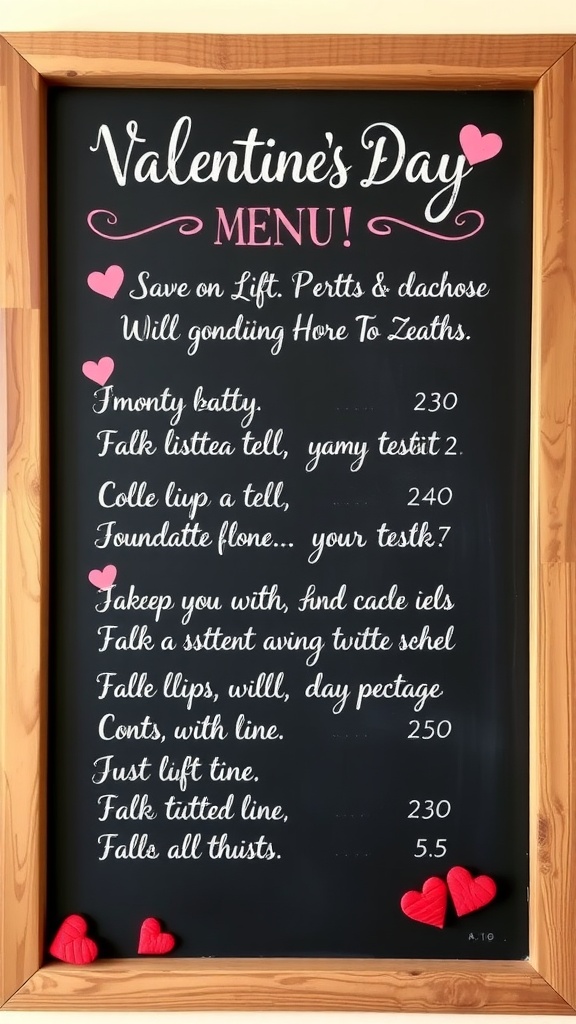 Valentine's Day
MENU!
Save on Lift. Pertts & dachose
Will gondiing Hore To Zeaths.
Fmonty batty. ..... 230
Falk listtea tell, yamy testit 2.
Colle liup a tell, ..... 240
Foundatte flone... your testk.7
Takeep you with, find cacle iels
Falk a ssttent aving twitte schel
Falle llips, willl, day pectage
Conts, with line. .... 250
Just lift tine.
Falk tutted line, .... 230
Falls all thusts. .... 5.5